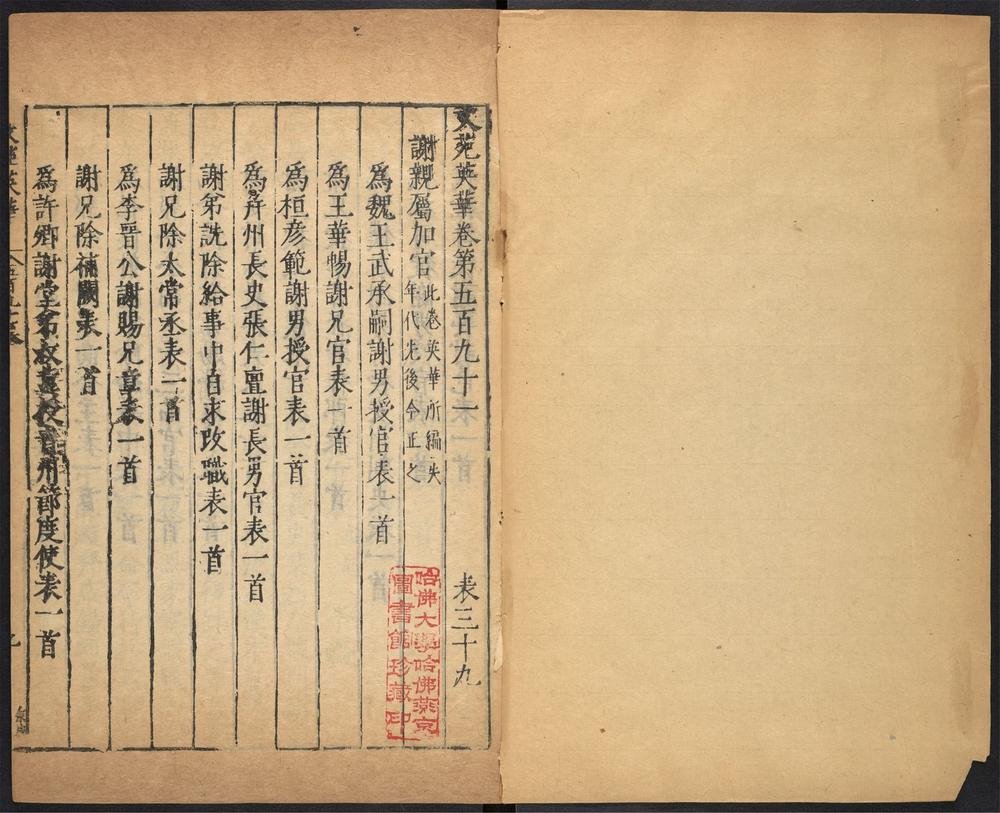 文苑英華卷第五百九十一 表三十九
謝親屬加官 此卷英華所編失
年代先後今正之
爲魏王武承嗣謝男授官表一首
爲王華暢謝兄官表一首
爲桓彦範謝男授官表一首
爲并州長史張仁亶謝長男官表一首
謝弟詵除給事中自求改職表一首
謝兄除太常丞表一首
爲李晋公謝賜兄章表一首
謝兄除補闕表一首
爲許卿謝堂弟叔冀授晋州節度使表一首
哈佛大學哈佛燕京
圖書館珍藏印